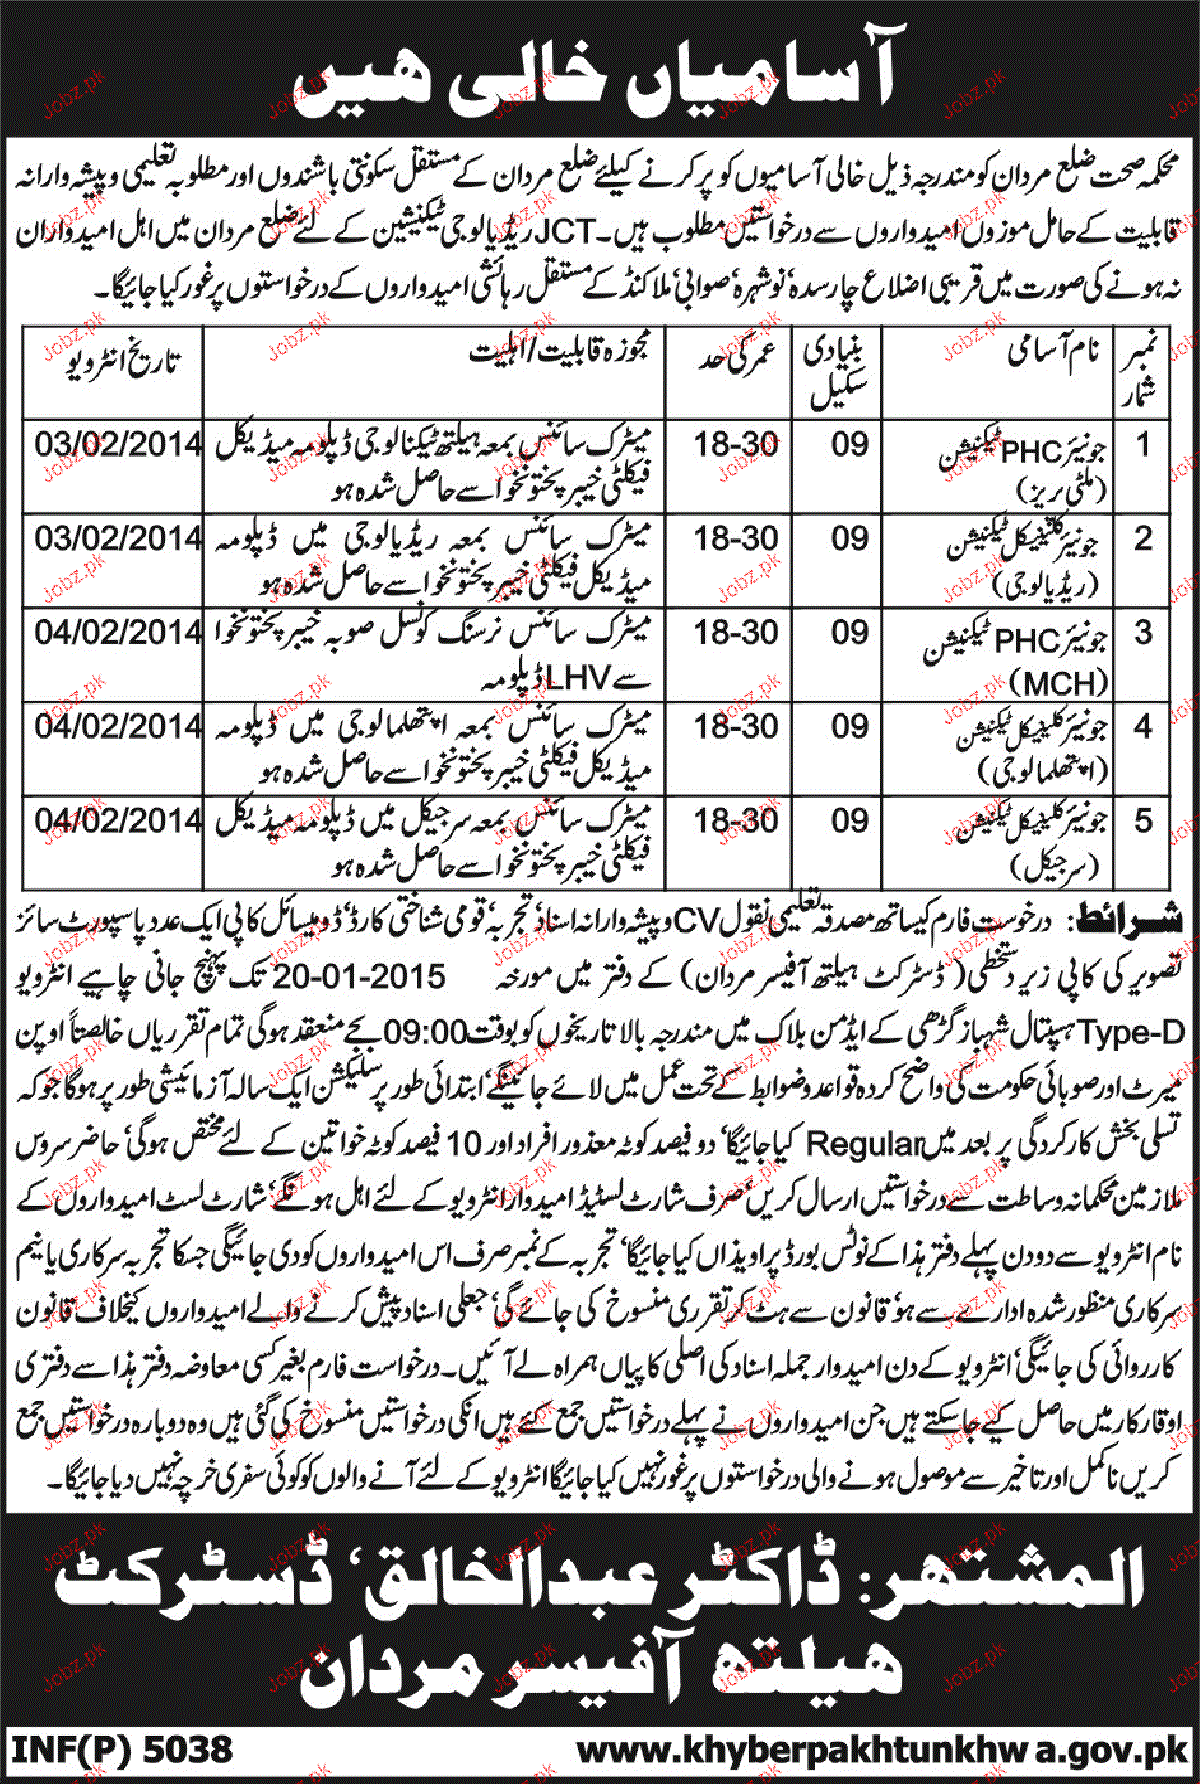 آسامیاں خالی ھیں
محکمہ صحت ضلع مردان کو مندرجہ ذیل خالی آسامیوں کو پر کرنے کیلئے ضلع مردان کے مستقل سکونتی باشندوں اور مطلوبہ تعلیمی و پیشہ وارانہ
قابلیت کے حامل موزوں امیدواروں سے درخواستیں مطلوب ہیں۔ JCT ریڈیالوجی ٹیکنیشین کے لئے ضلع مردان میں اہل امیدواران
نہ ہونے کی صورت میں قریبی اضلاع چارسدہ، نوشہرہ، صوابی، ملاکنڈ کے مستقل رہائشی امیدواروں کے درخواستوں پر غور کیا جائیگا۔
نمبر شمار | نام آسامی | بنیادی سکیل | عمر کی حد | مجوزہ قابلیت/اہلیت | تاریخ انٹرویو
1 | جونیئر PHC ٹیکنیشن (ملٹی پرپز) | 09 | 18-30 | میٹرک سائنس بمعہ ہیلتھ ٹیکنالوجی ڈپلومہ میڈیکل فیکلٹی خیبر پختونخوا سے حاصل شدہ ہو | 03/02/2014
2 | جونیئر کلینیکل ٹیکنیشن (ریڈیالوجی) | 09 | 18-30 | میٹرک سائنس بمعہ ریڈیالوجی میں ڈپلومہ میڈیکل فیکلٹی خیبر پختونخوا سے حاصل شدہ ہو | 03/02/2014
3 | جونیئر PHC ٹیکنیشن (MCH) | 09 | 18-30 | میٹرک سائنس نرسنگ کونسل صوبہ خیبر پختونخوا سے LHV ڈپلومہ | 04/02/2014
4 | جونیئر کلینیکل ٹیکنیشن (اپتھلمالوجی) | 09 | 18-30 | میٹرک سائنس بمعہ اپتھلمالوجی میں ڈپلومہ میڈیکل فیکلٹی خیبر پختونخوا سے حاصل شدہ ہو | 04/02/2014
5 | جونیئر کلینیکل ٹیکنیشن (سرجیکل) | 09 | 18-30 | میٹرک سائنس بمعہ سرجیکل میں ڈپلومہ میڈیکل فیکلٹی خیبر پختونخوا سے حاصل شدہ ہو | 04/02/2014
شرائط: درخوست فارم کیساتھ مصدقہ تعلیمی نقول CV و پیشہ وارانہ اسناد، تجربہ، قومی شناختی کارڈ، ڈومیسائل کاپی ایک عدد پاسپورٹ سائز
تصویر کی کاپی زیر دستخطی (ڈسٹرکٹ ہیلتھ آفیسر مردان) کے دفتر میں مورخہ 20-01-2015 تک پہنچ جانی چاہیے انٹرویو
Type-D ہسپتال شہباز گڑھی کے ایڈمن بلاک میں مندرجہ بالا تاریخوں کو بوقت 09:00 بجے منعقد ہوگی تمام تقرریاں خالصتاً اوپن
میرٹ اور صوبائی حکومت کی واضح کردہ قواعد و ضوابط کے تحت عمل میں لائے جائینگے، ابتدائی طور پر سلیکشن ایک سالہ آزمائیشی طور پر ہوگا جو کہ
تسلی بخش کارکردگی پر بعد میں Regular کیا جائیگا، دو فیصد کوٹہ معذور افراد اور 10 فیصد کوٹہ خواتین کے لئے مختص ہوگی، حاضر سروس
ملازمین محکمانہ وساطت سے درخواستیں ارسال کریں، صرف شارٹ لسٹیڈ امیدوار انٹرویو کے لئے اہل ہونگے، شارٹ لسٹ امیدواروں کے
نام انٹرویو سے دو دن پہلے دفتر ہذا کے نوٹس بورڈ پر اویذاں کیا جائیگا، تجربہ کے نمبر صرف اس امیدواروں کو دی جائیگی جسکا تجربہ سرکاری یا نیم
سرکاری منظور شدہ ادارے سے ہو، قانون سے ہٹ کر تقرری منسوخ کی جائے گی، جعلی اسناد پیش کرنے والے امیدواروں کیخلاف قانون
کارروائی کی جائیگی، انٹرویو کے دن امیدوار جملہ اسناد کی اصلی کاپیاں ہمراہ لے آئیں۔ درخواست فارم بغیر کسی معاوضہ دفتر ہذا سے دفتری
اوقار کار میں حاصل کیے جاسکتے ہیں جن امیدواروں نے پہلے درخواستیں جمع کئے ہیں انکی درخواستیں منسوخ کی گئی ہیں وہ دوبارہ درخواستیں جمع
کریں نامکمل اور تاخیر سے موصول ہونے والی درخواستوں پر غور نہیں کیا جائیگا انٹرویو کے لئے آنے والوں کو کوئی سفری خرچہ نہیں دیا جائیگا۔
المشتھر: ڈاکٹر عبدالخالق، ڈسٹرکٹ
ھیلتھ آفیسر مردان
INF(P) 5038
www.khyberpakhtunkhwa.gov.pk
Jobz.pk